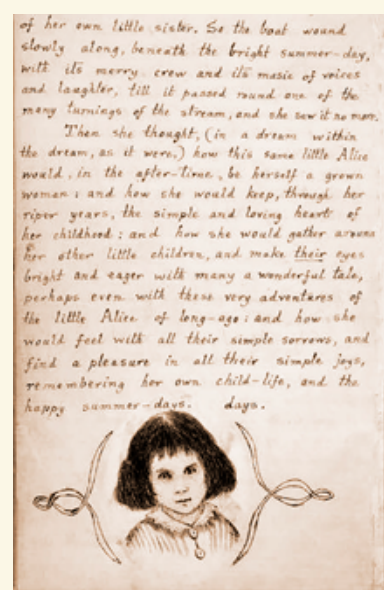 of her own little sister. So the boat wound
slowly along, beneath the bright summer-day,
with its merry crew and its music of voices
and laughter, till it passed round one of the
many turnings of the stream, and she saw it no more.
Then she thought, (in a dream within
the dream, as it were,) how this same little Alice
would, in the after-time, be herself a grown
woman: and how she would keep, through her
riper years, the simple and loving heart of
her childhood: and how she would gather around
her other little children, and make their eyes
bright and eager with many a wonderful tale,
perhaps even with these very adventures of
the little Alice of long-ago: and how she
would feel with all their simple sorrows, and
find a pleasure in all their simple joys,
remembering her own child-life, and the
happy summer-days. days.